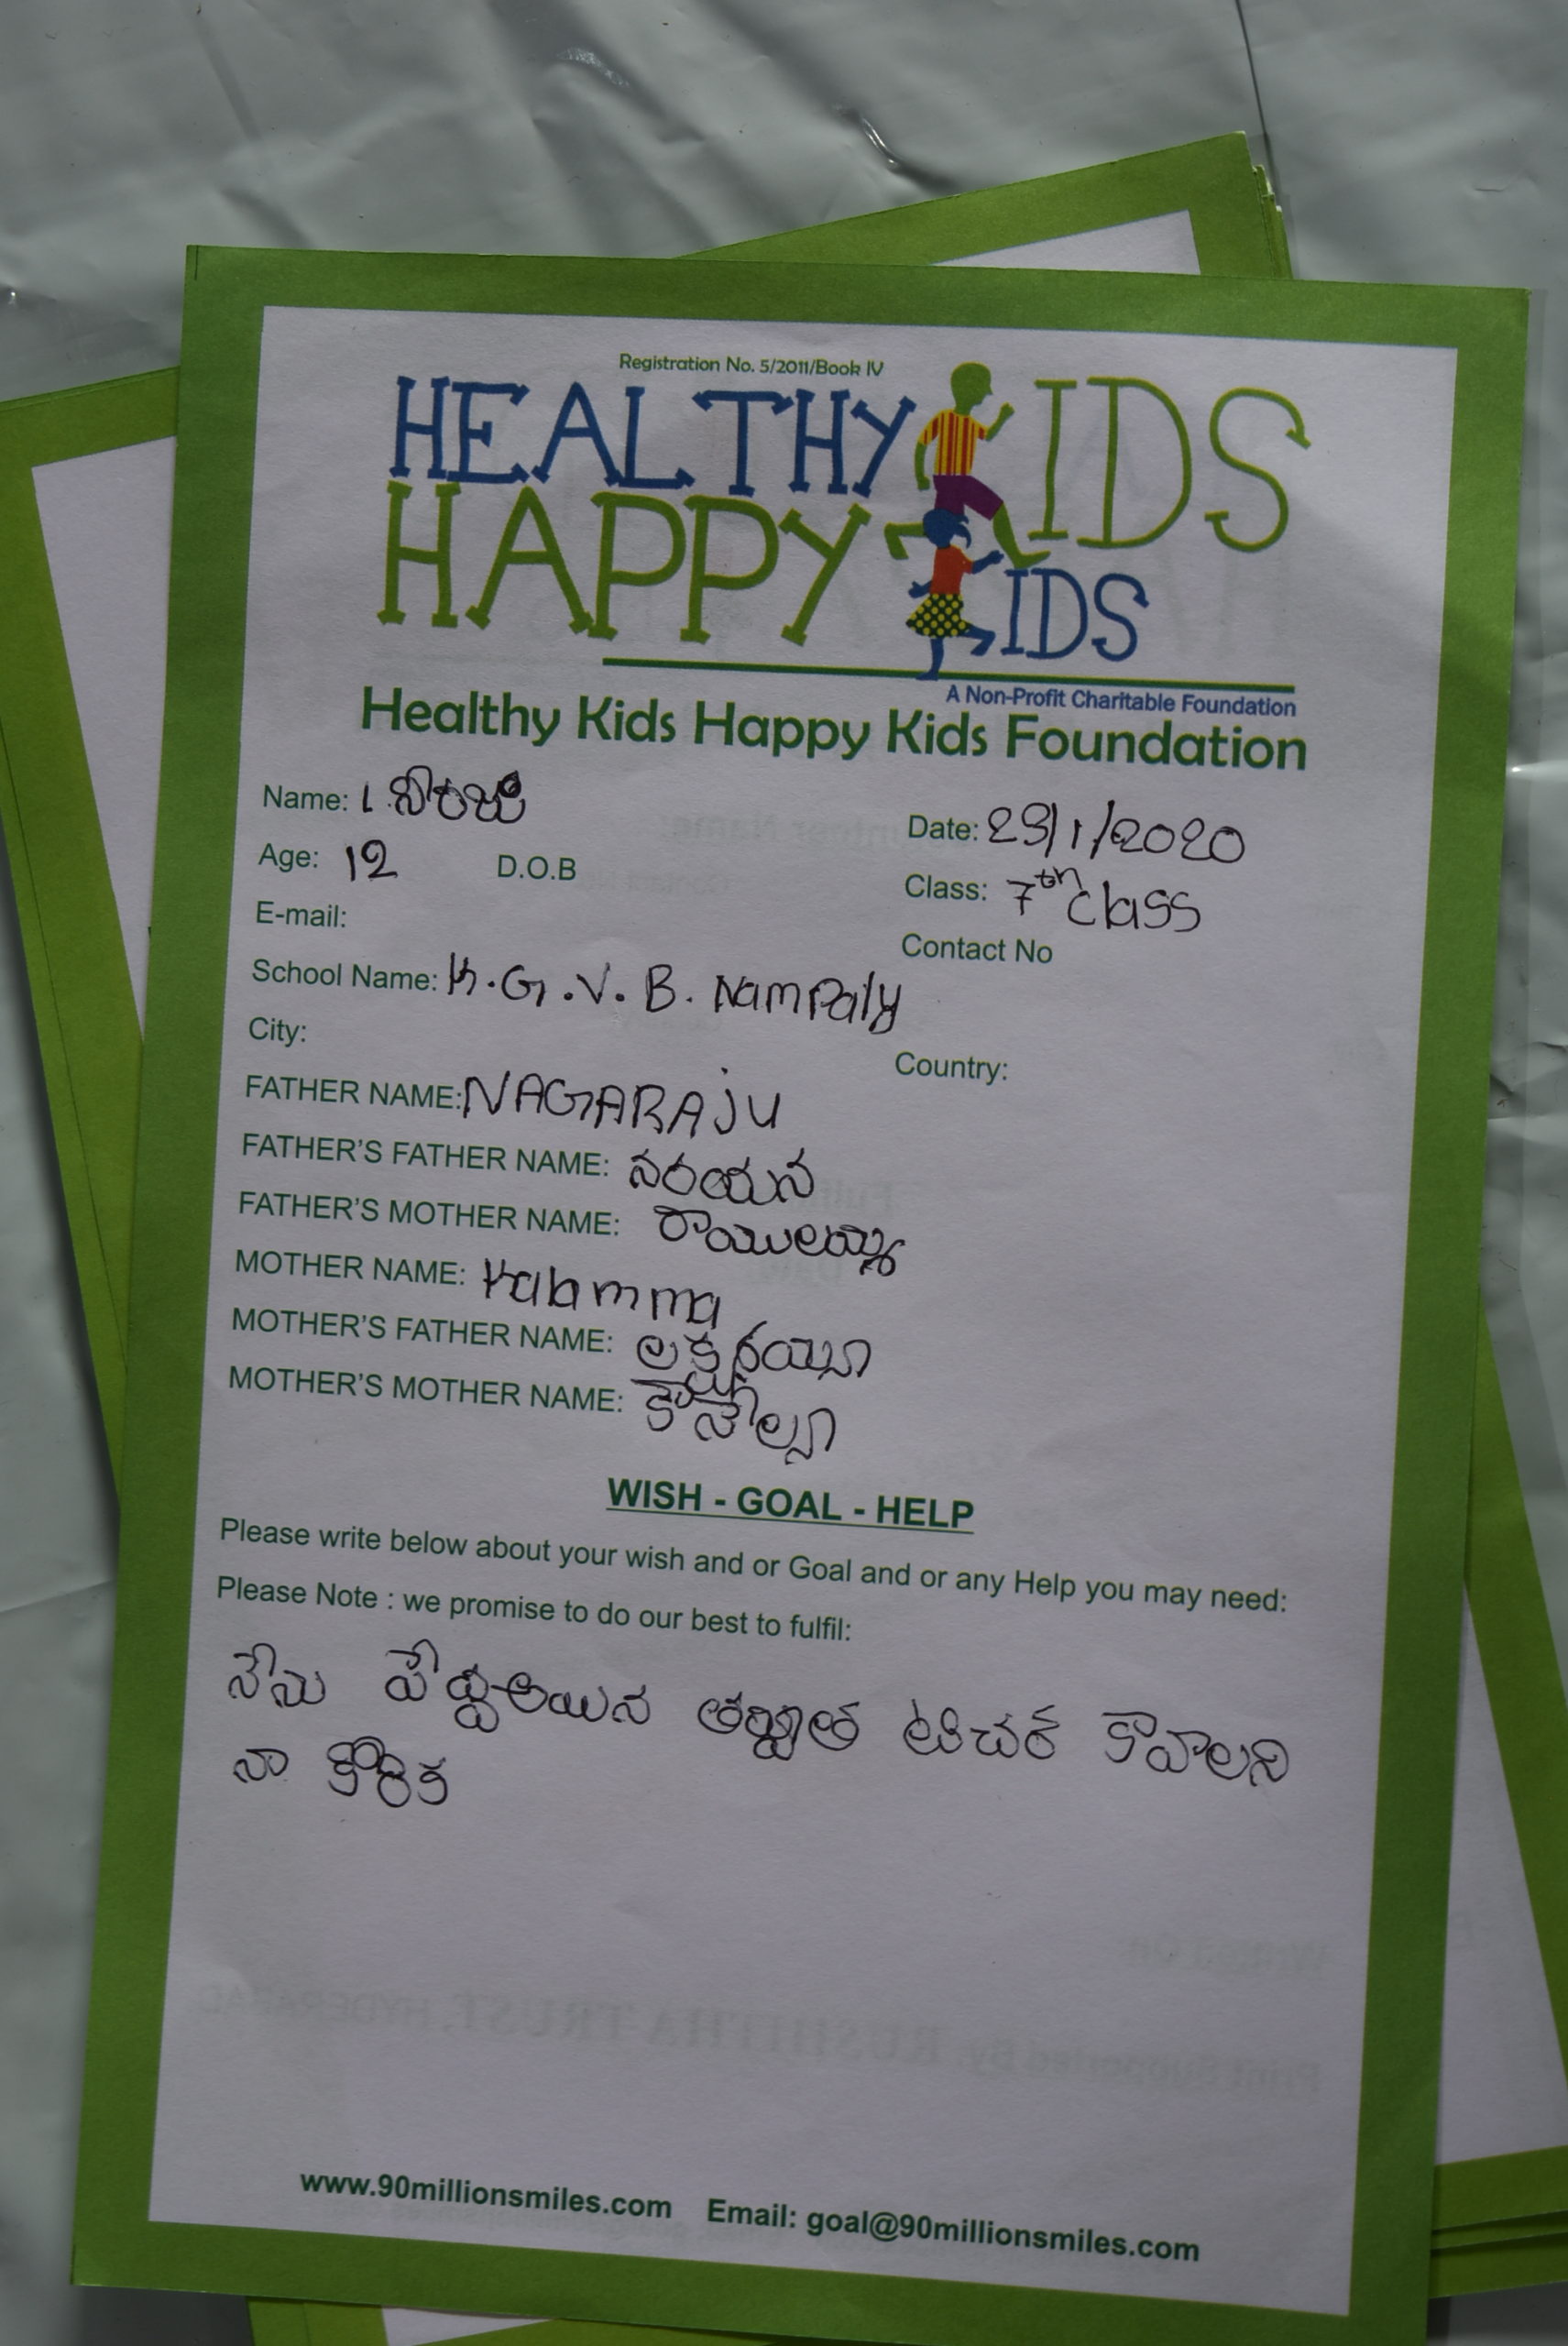 Registration No. 5/2011/Book IV
HEALTHY KIDS
HAPPY KIDS
A Non-Profit Charitable Foundation
Healthy Kids Happy Kids Foundation
Name:
Date: 29/1/2020
Age: 12 D.O.B
Class: 7th class
E-mail:
Contact No
School Name: K.G.V.B. Nampaly
City:
Country:
FATHER NAME: NAGARAJU
FATHER'S FATHER NAME: నరయన
FATHER'S MOTHER NAME:
MOTHER NAME: Kalamma
MOTHER'S FATHER NAME:
MOTHER'S MOTHER NAME:
WISH - GOAL - HELP
Please write below about your wish and or Goal and or any Help you may need:
Please Note : we promise to do our best to fulfil:
నేను అయిన టిచర్ కావాలని
నా కోరిక
www.90millionsmiles.com Email: goal@90millionsmiles.com